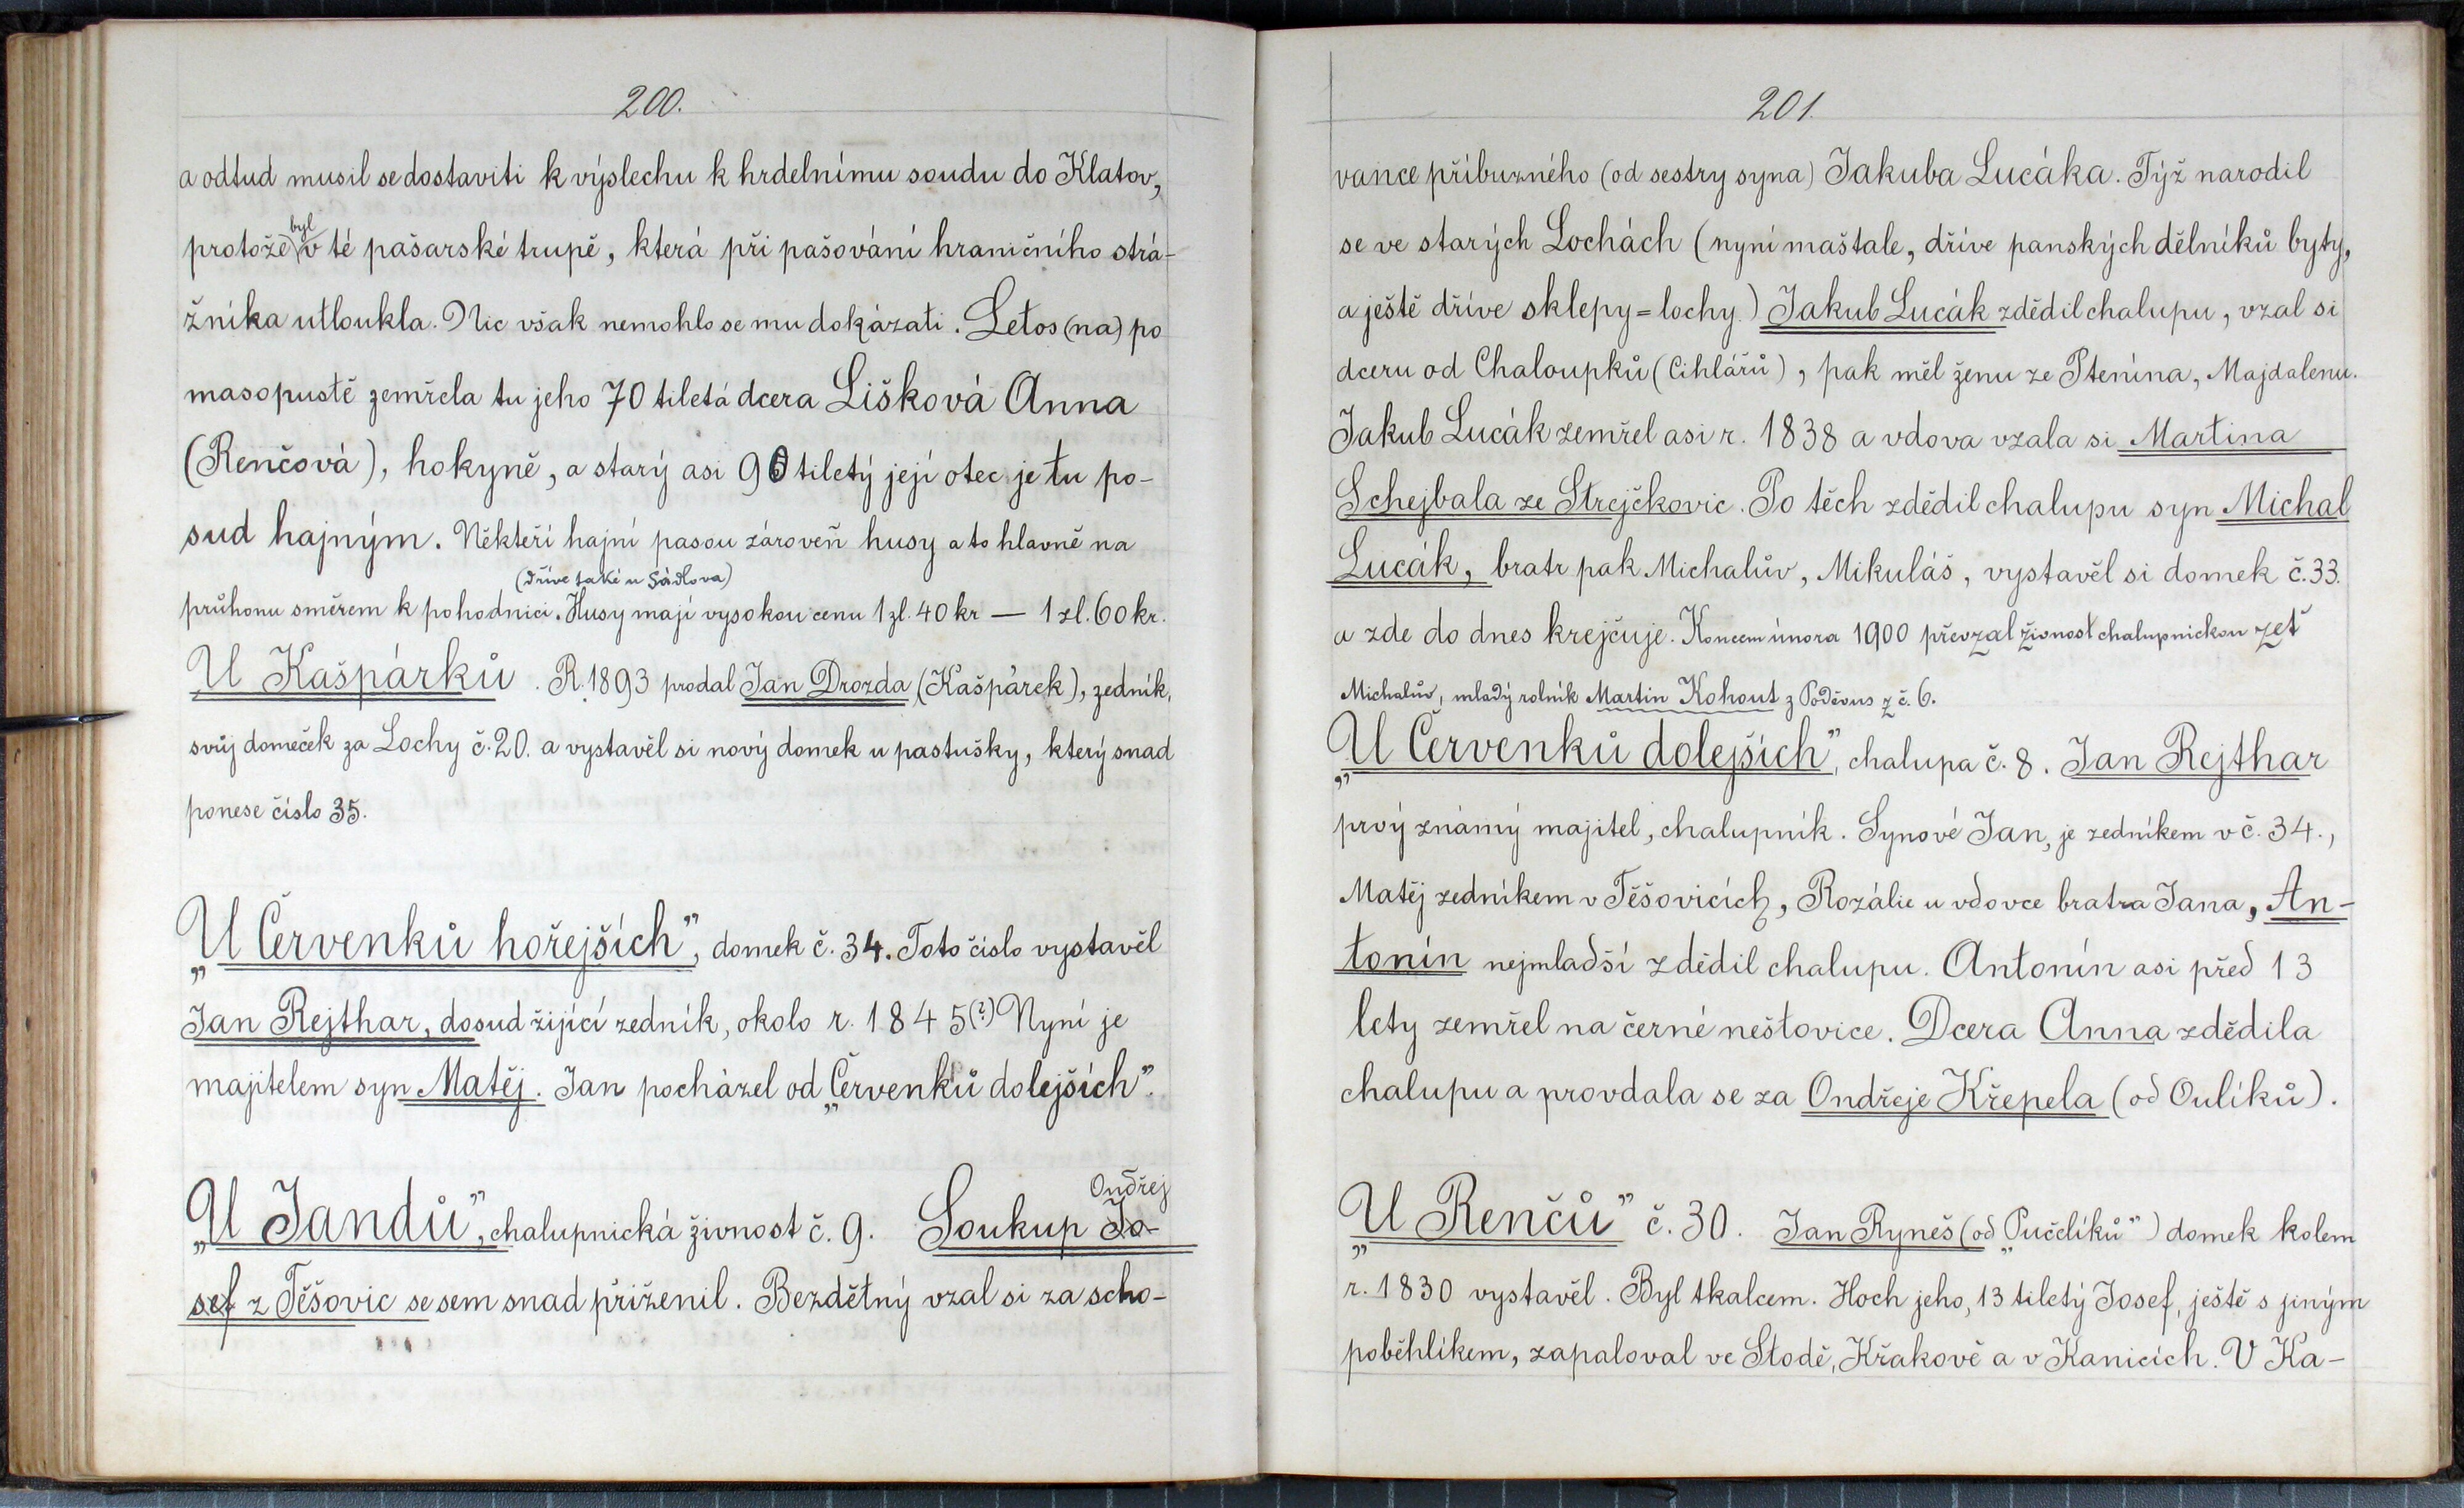 200.
a odtud musil se dostaviti k výslechu k hrdelnímu soudu do Klatov,
byl
protože v té pašarské trupě, která při pašování hraničního strá-
žníka utloukla. Nic však nemohlo se mu dokázati. Letos (na) po
masopustě zemřela tu jeho 70 tiletá dcera Lišková Anna
(Renčová), hokyně, a starý asi 90 tiletý její otec je tu po-
sud hajným. Někteří hajní pasou zároveň husy a to hlavně na
(dříve také u Sádlova)
průhonu směrem k pohodnici. Husy mají vysokou cenu 1 zl. 40 kr — 1 zl. 60 kr.
U Kašpárků. R. 1893 prodal Jan Drozda (Kašpárek), zedník,
svůj domeček za Lochy č. 20. a vystavěl si nový domek u pastušky, který snad
ponese číslo 35.
„U Červenků hořejších”, domek č. 34. Toto číslo vystavěl
Jan Rejthar, dosud žijící zedník, okolo r. 1845(?) Nyní je
majitelem syn Matěj. Jan pocházel od „Červenků dolejších”.
Ondřej
„U Jandů”, chalupnická živnost č. 9. Soukup Jo-
sef z Těšovic se sem snad přiženil. Bezdětný vzal si za scho-
201.
vance příbuzného (od sestry syna) Jakuba Lucáka. Týž narodil
se ve starých Lochách (nyní maštale, dříve panských dělníků byty,
a ještě dříve sklepy = lochy.) Jakub Lucák zdědil chalupu, vzal si
dceru od Chaloupků (Cihlářů), pak měl ženu ze Ptenína, Majdalenu.
Jakub Lucák zemřel asi r. 1838 a vdova vzala si Martina
Schejbala ze Strejčkovic. Po těch zdědil chalupu syn Michal
Lucák, bratr pak Michalův, Mikuláš, vystavěl si domek č. 33.
a zde do dnes krejčuje. Koncem února 1900 převzal živnost chalupnickou zeť
Michalův, mladý rolník Martin Kohout z Poděvus z č. 6.
„U Červenků dolejších”, chalupa č. 8. Jan Rejthar
prvý známý majitel, chalupník. Synové Jan, je zedníkem v č. 34.,
Matěj zedníkem v Těšovicích, Rozálie u vdovce bratra Jana, An-
tonín nejmladší zdědil chalupu. Antonín asi před 13
lety zemřel na černé neštovice. Dcera Anna zdědila
chalupu a provdala se za Ondřeje Křepela (od Oulíků).
„U Renčů” č. 30. Jan Ryneš (od „Pučelíků”) domek kolem
r. 1830 vystavěl. Byl tkalcem. Hoch jeho, 13 tiletý Josef, ještě s jiným
poběhlíkem, zapaloval ve Stodě, Křakově a v Kanicích. V Ka-